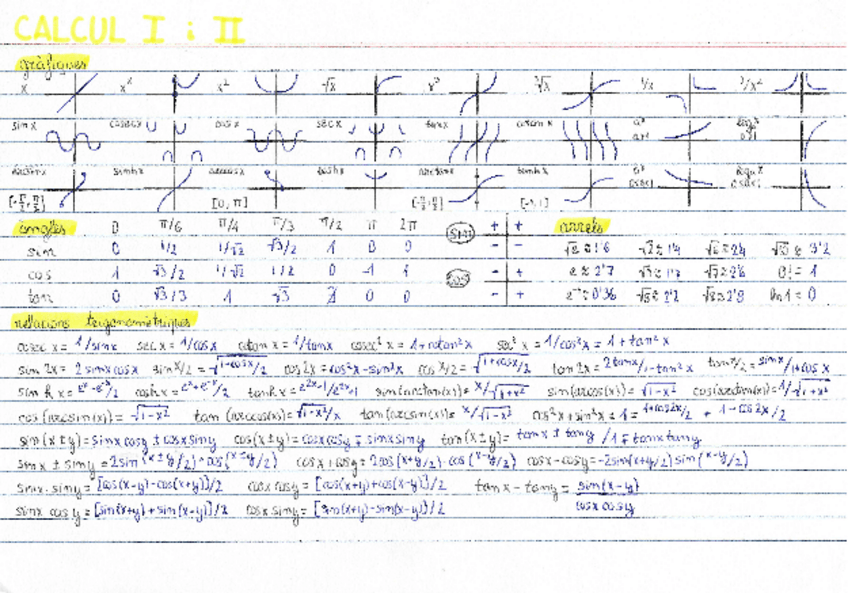 CALCUL I i II
gràfiques
x x² √x x³ ∛x 1/x 1/x²
sin x cosec x cos x sec x tan x
sinh x tanh x
[-π/2, π/2] [0, π] [-1, 1]
angles 0 π/6 π/4 π/3 π/2 π 2π sin + + arrels
sin 0 1/2 1/√2 √3/2 1 0 0 - -
cos 1 √3/2 1/√2 1/2 0 -1 1 cos - + e ≈ 2'7 0! = 1
tan 0 √3/3 1 √3 ∄ 0 0 - + ln 1 = 0
relacions trigonomètriques
cosec x = 1/sin x sec x = 1/cos x cotan x = 1/tan x cosec² x = 1 + cotan² x sec² x = 1/cos² x = 1 + tan² x
sin 2x = 2 sin x cos x sin x/2 = √1-cos x/2 cos 2x = cos² x - sin² x cos x/2 = √1+cos x/2 tan 2x = 2tan x/1-tan² x tan x/2 = sin x/1+cos x
sin h x = eˣ-e⁻ˣ/2 cosh x = eˣ+e⁻ˣ/2 tanh x = e²ˣ-1/e²ˣ+1 sin(arctan(x)) = x/√1+x² sin(arccos(x)) = √1-x² cos(arctan(x)) = 1/√1+x²
cos (arcsin(x)) = √1-x² tan (arccos(x)) = √1-x²/x tan (arcsin(x)) = x/√1-x² cos² x + sin² x = 1 = 1+cos 2x/2 + 1-cos 2x/2
sin (x ± y) = sin x cos y ± cos x sin y cos(x ± y) = cos x cos y ∓ sin x sin y tan (x ± y) = tan x ± tan y /1 ∓ tan x tan y
sin x ± sin y = 2sin (x ± y/2) · cos (x ∓ y/2) cos x + cos y = 2cos (x+y/2) · cos (x-y/2) cos x - cos y = -2sin(x+y/2) sin (x-y/2)
sin x · sin y = [cos(x-y) - cos(x+y)]/2 cos x cos y = [cos(x+y) + cos(x-y)]/2 tan x - tan y = sin(x-y)
cos x cos y
sin x cos y = [sin(x+y) + sin(x-y)]/2 cos x sin y = [sin(x+y) - sin(x-y)]/2